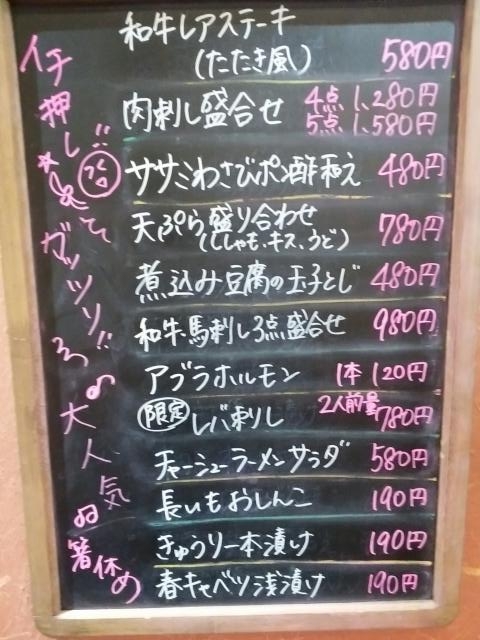 和牛レアステーキ
(たたき風) 580円
肉刺し盛合せ 4点 1,280円
5点 1,580円
ササミわさびポン酢和え 480円
天ぷら盛り合わせ 780円
(ししゃも、キス、うど)
煮込み豆腐の玉子とじ 480円
和牛、馬刺し3点盛合せ 980円
アブラホルモン 1本 120円
限定 レバ刺し 2人前量 780円
チャーシューラーメンサラダ 580円
長いもおしんこ 190円
きゅうり一本漬け 190円
春キャベツ浅漬け 190円
イチ押し!!
ガッツリ!!
大人気
箸休め